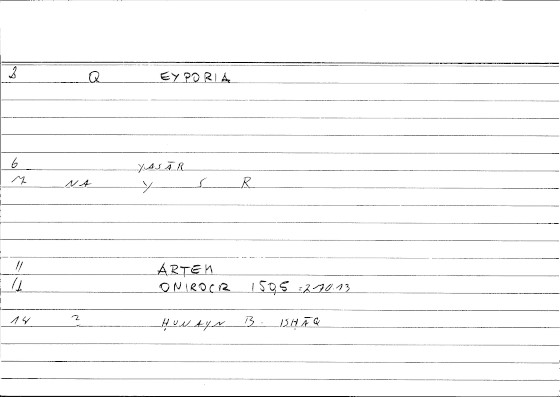 3 Q EYPORIA
6 YASĀR
NA Y S R
11 ARTEM
12 ONIROCR 150,5 = 270 13
14 ? ḤUNAYN B. ISḤĀQ